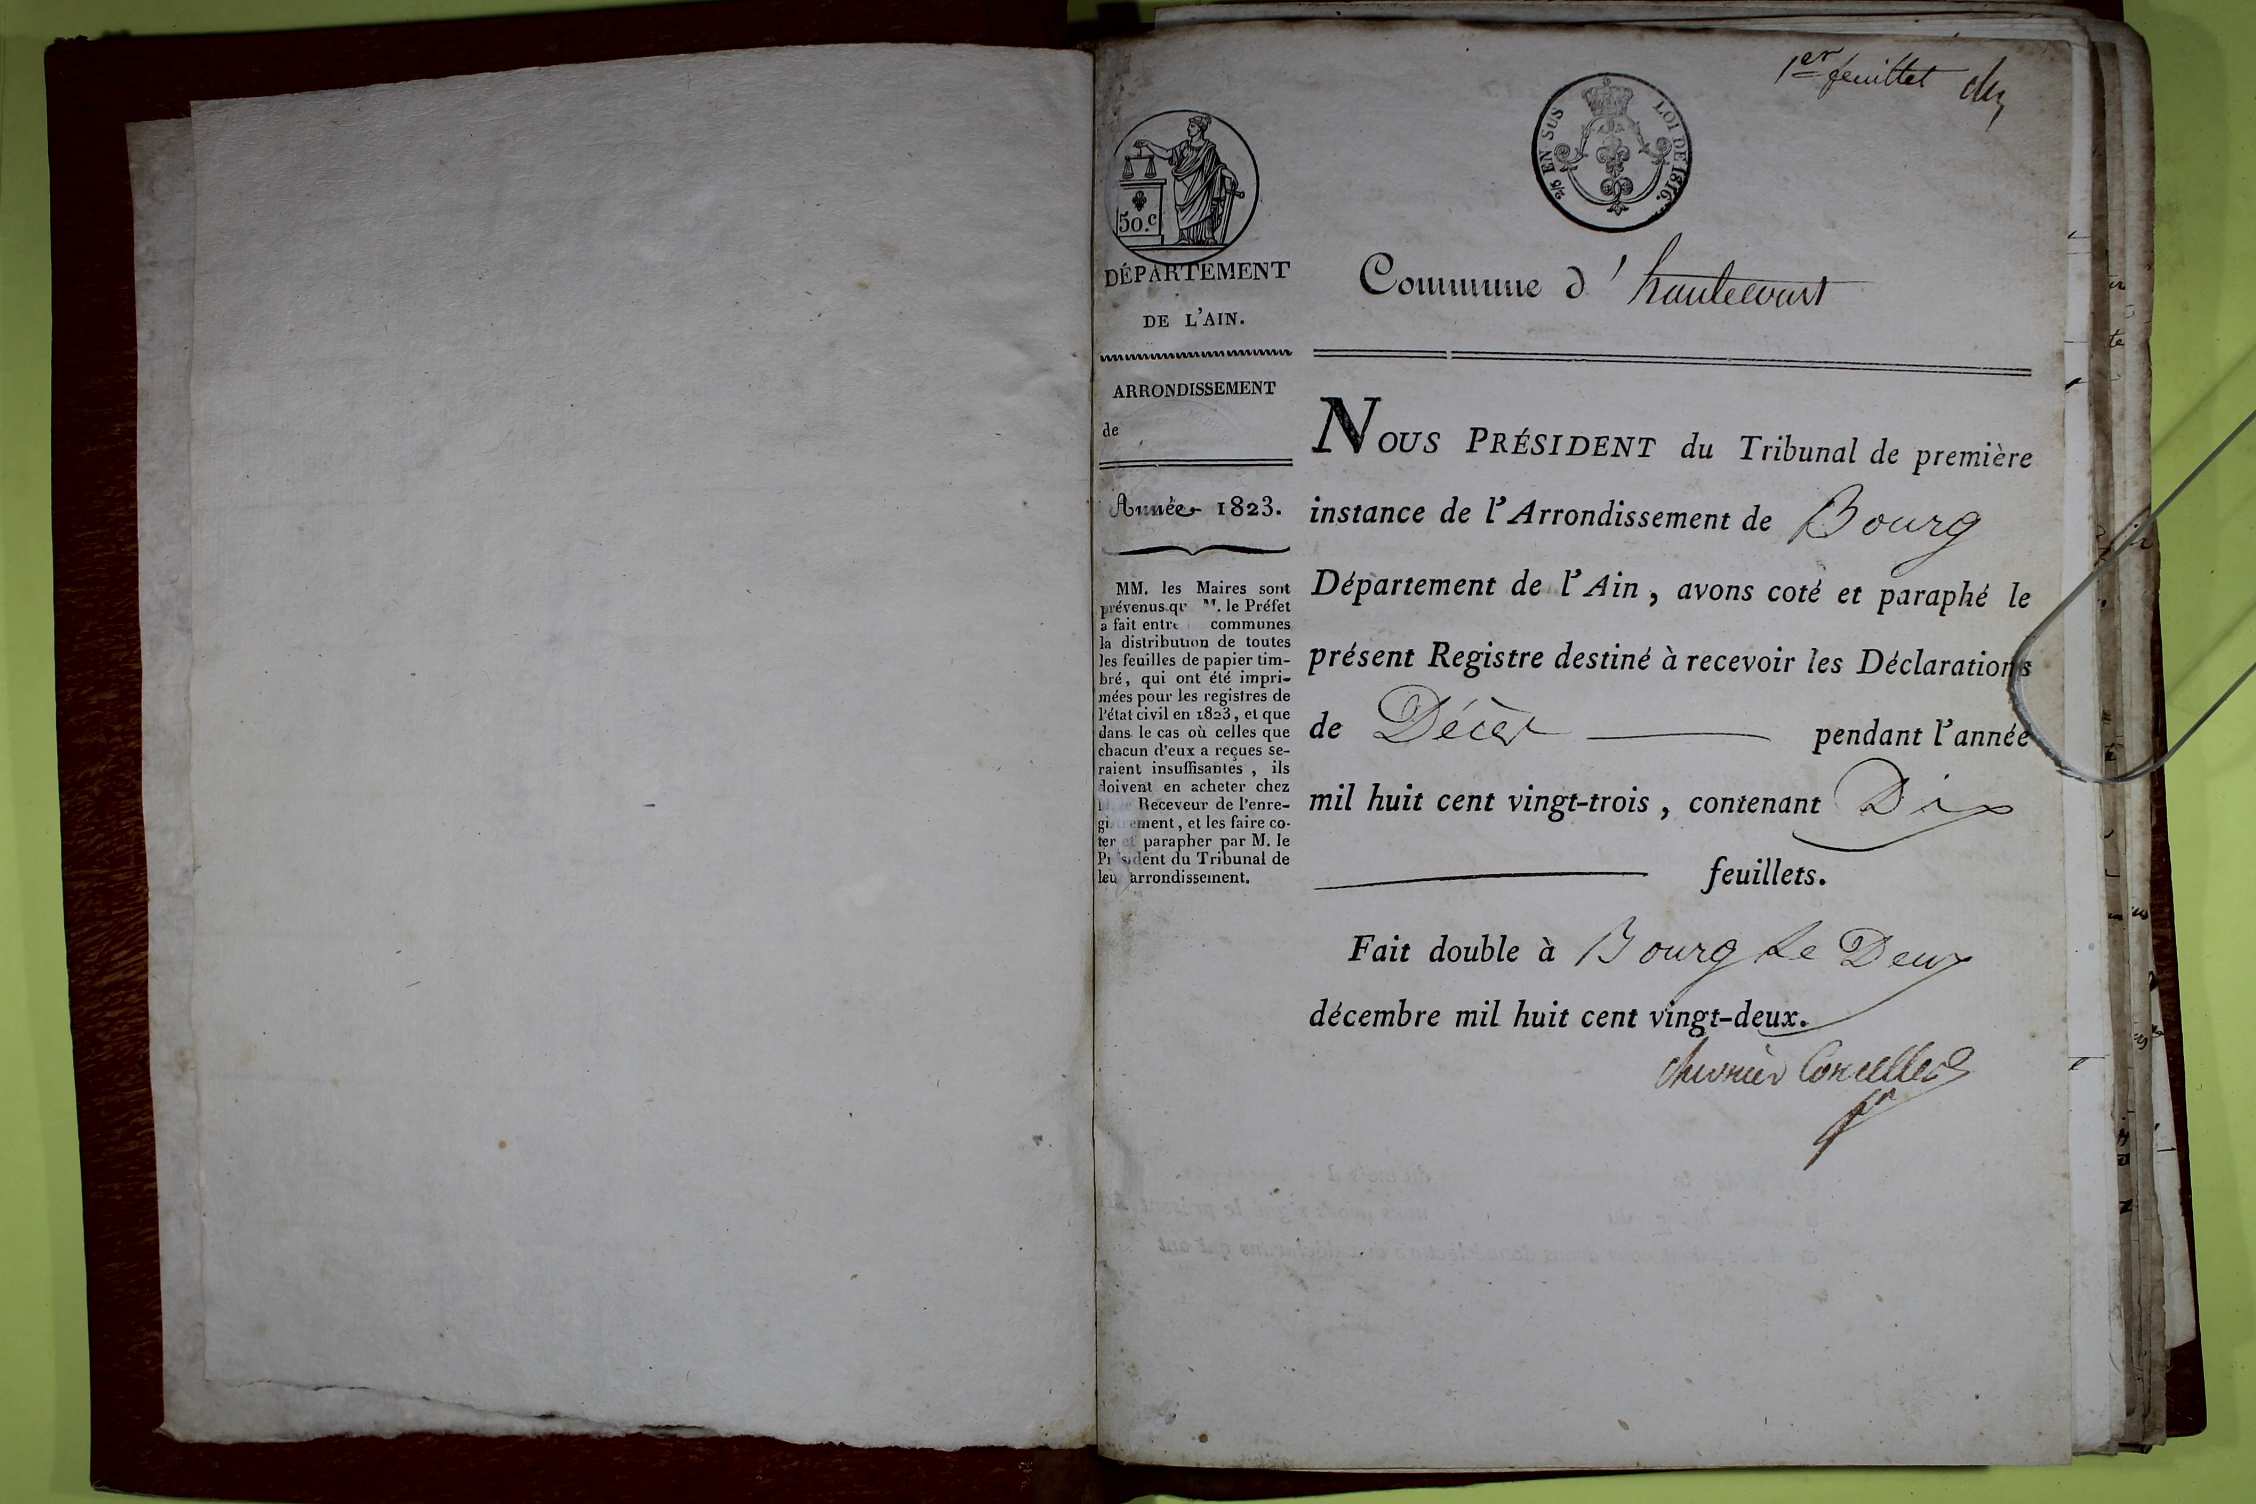 1er feuillet
2/5 EN SUS LOI DE 1816.
50.c
DÉPARTEMENT
DE L'AIN.
ARRONDISSEMENT
de
Année 1823.
MM. les Maires sont
prévenus M. le Préfet
a fait communes
la distribution de toutes
les feuilles de papier tim-
bré, qui ont été impri-
mées pour les registres de
l'état civil en 1823, et que
dans le cas où celles que
chacun d'eux a reçues se-
raient insuffisantes, ils
doivent en acheter chez
Receveur de l'enre-
gistrement, et les faire co-
ter et parapher par M. le
Président du Tribunal de
leur arrondissement.
Commune d'hautecourt
NOUS PRÉSIDENT du Tribunal de première
instance de l'Arrondissement de Bourg
Département de l'Ain, avons coté et paraphé le
présent Registre destiné à recevoir les Déclarations
de Décès pendant l'année
mil huit cent vingt-trois, contenant Dix
feuillets.
Fait double à Bourg Le Deux
décembre mil huit cent vingt-deux.